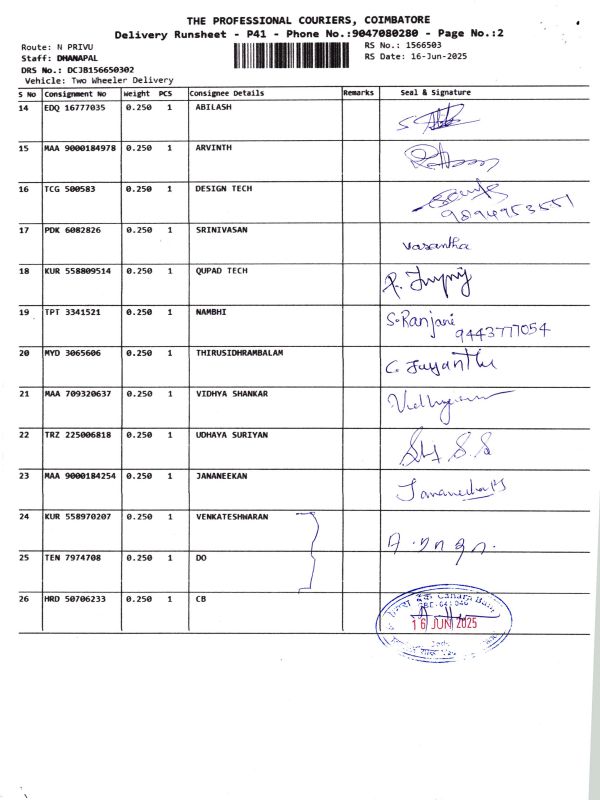 THE PROFESSIONAL COURIERS, COIMBATORE
Delivery Runsheet - P41 - Phone No.:9047080280 - Page No.:2
Route: N PRIVU
RS No.: 1566503
Staff: DHANAPAL
RS Date: 16-Jun-2025
DRS No.: DCJB156650302
Vehicle: Two Wheeler Delivery
S No Consignment No Weight PCS Consignee Details Remarks Seal & Signature
14 EDQ 16777035 0.250 1 ABILASH
15 MAA 9000184978 0.250 1 ARVINTH
16 TCG 500583 0.250 1 DESIGN TECH
9894953551
17 PDK 6082826 0.250 1 SRINIVASAN Vasantha
18 KUR 558809514 0.250 1 QUPAD TECH
19 TPT 3341521 0.250 1 NAMBHI S.Ranjani
9443777054
20 MYD 3065606 0.250 1 THIRUSIDHRAMBALAM C. Jayanthi
21 MAA 709320637 0.250 1 VIDHYA SHANKAR
22 TRZ 225006818 0.250 1 UDHAYA SURIYAN
23 MAA 9000184254 0.250 1 JANANEEKAN
24 KUR 558970207 0.250 1 VENKATESHWARAN
25 TEN 7974708 0.250 1 DO
26 HRD 50706233 0.250 1 CB
Canara Bank
16 JUN 2025